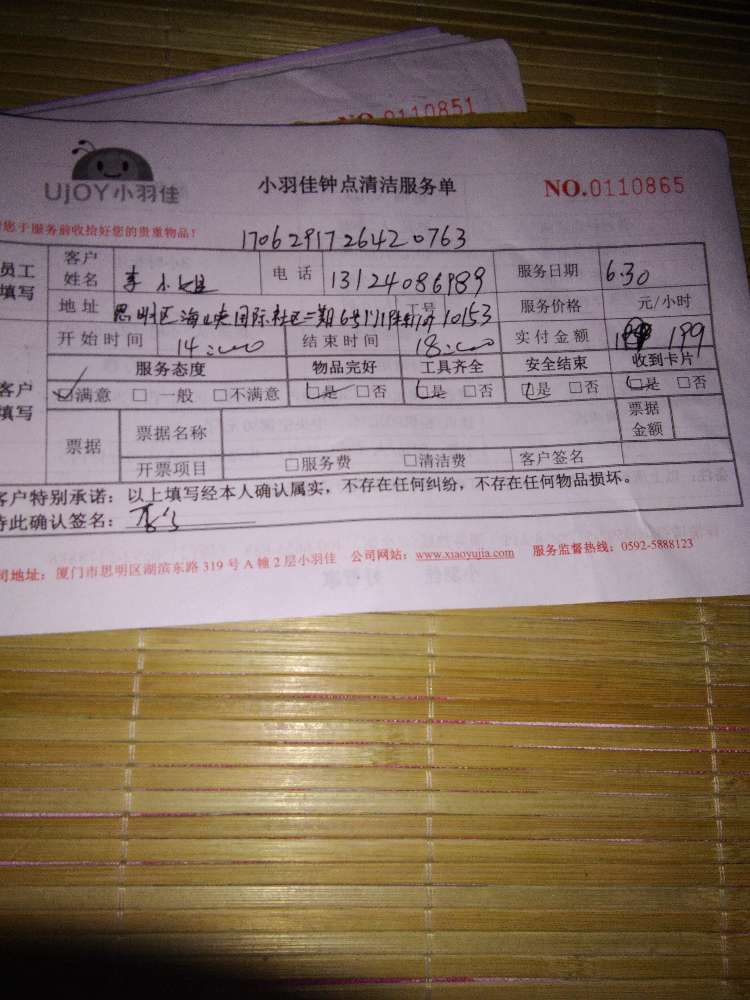 NO.0110851
UjOY小羽佳 小羽佳钟点清洁服务单 NO.0110865
您于服务前收拾好您的贵重物品!
17062917264207​63
员工填写 客户姓名 李小姐 电话 13124086989 服务日期 6.30
地址 思明区海峡国际社区二期6号 工号 10153 服务价格 元/小时
开始时间 14:00 结束时间 18:00 实付金额 199
客户填写 服务态度 物品完好 工具齐全 安全结束 收到卡片
☑满意 □一般 □不满意 ☑是 □否 ☑是 □否 ☑是 □否 ☑是 □否
票据 票据名称 票据金额
开票项目 □服务费 □清洁费 客户签名
客户特别承诺:以上填写经本人确认属实,不存在任何纠纷,不存在任何物品损坏。
特此确认签名:
司地址:厦门市思明区湖滨东路319号A幢2层小羽佳 公司网站:www.xiaoyujia.com 服务监督热线:0592-5888123